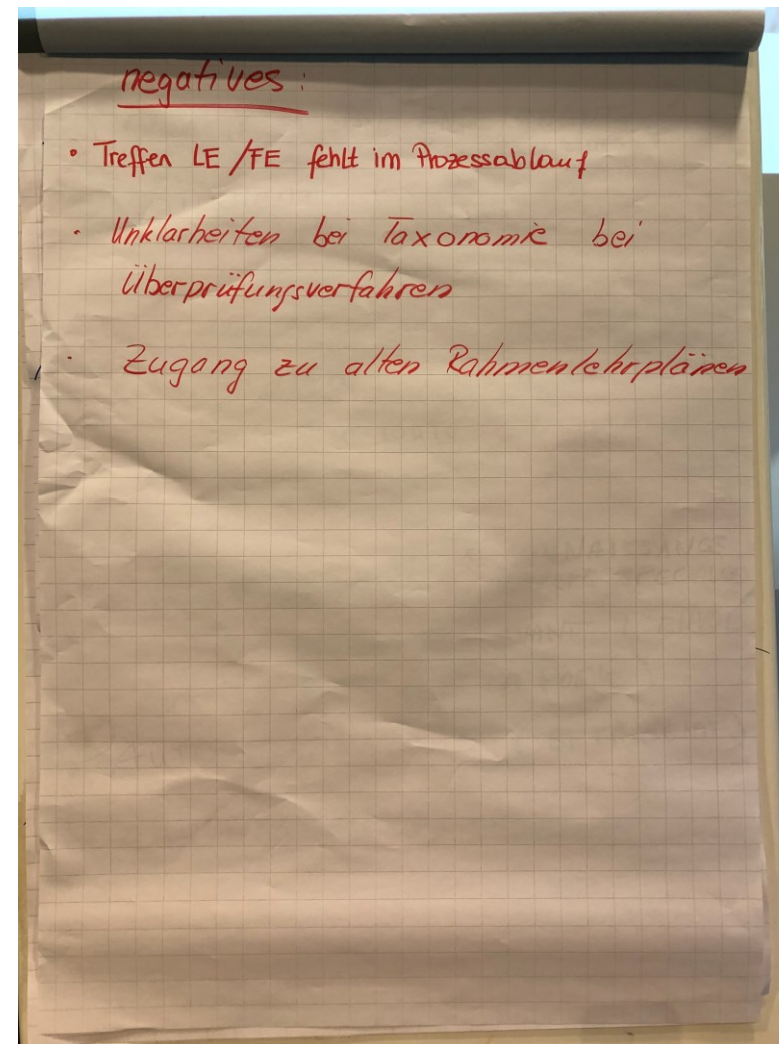 negatives:
• Treffen LE/FE fehlt im Prozessablauf
• Unklarheiten bei Taxonomie bei
Überprüfungsverfahren
• Zugang zu alten Rahmenlehrplänen